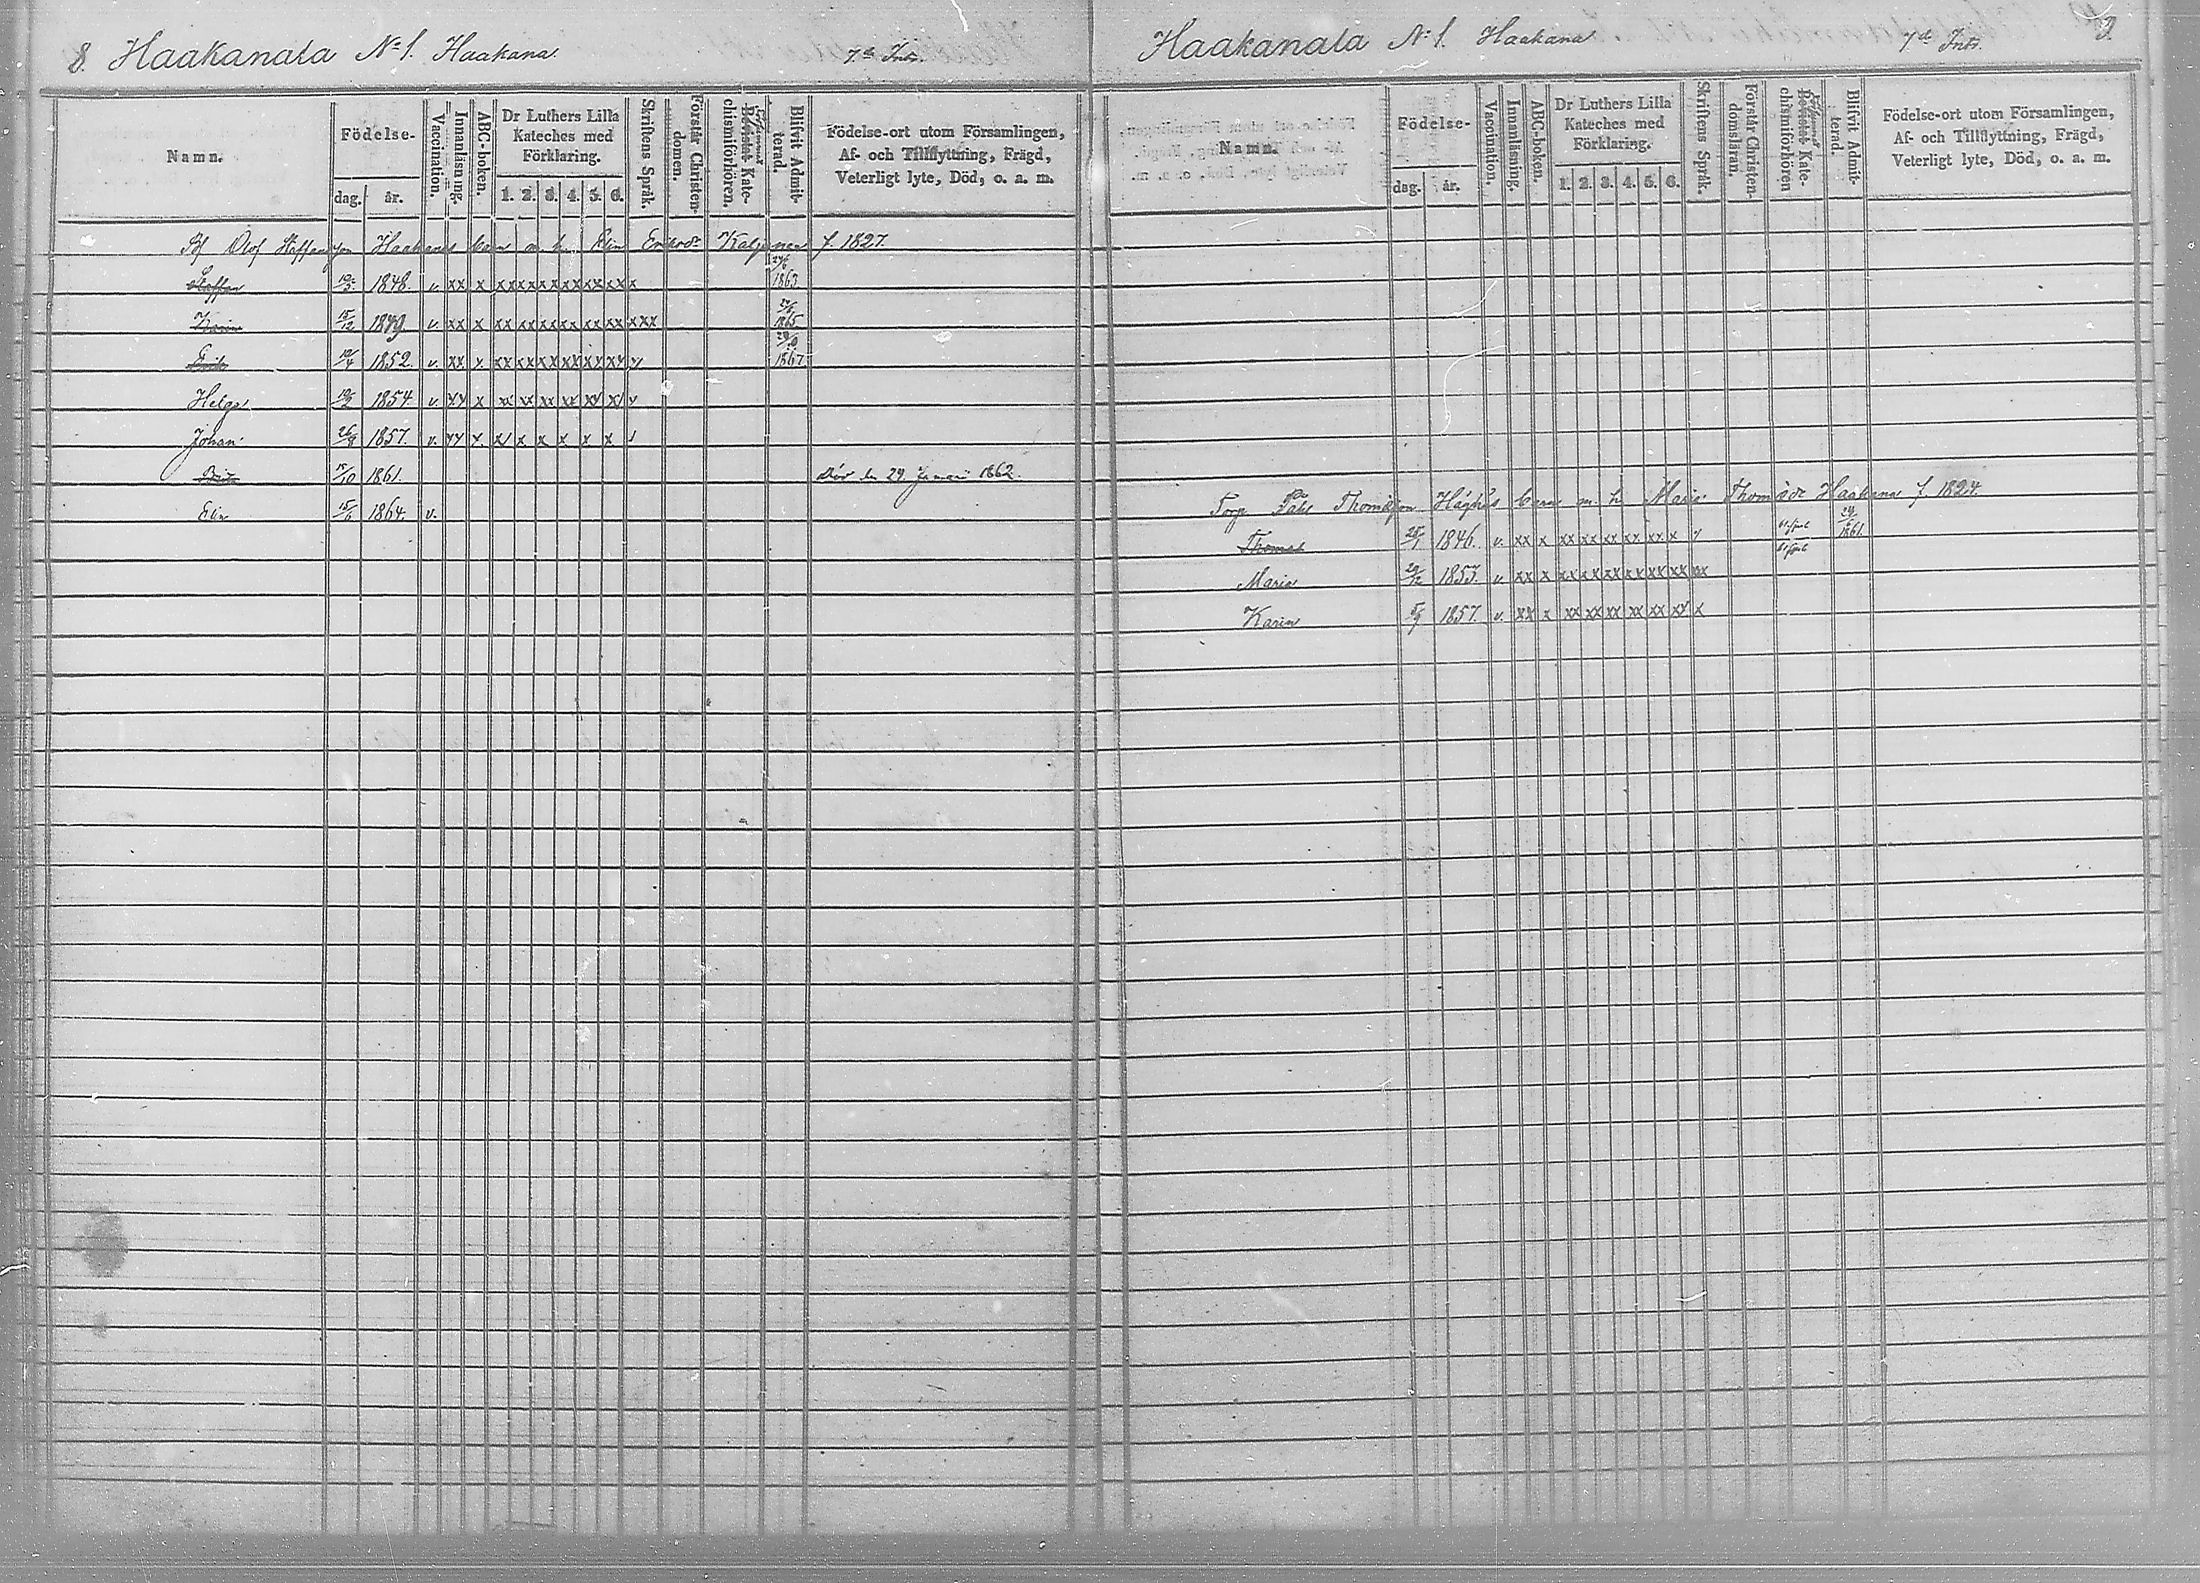 8. Haakanala No 1. Haakana. 7de Intr.
Namn. Födelse- dag. år. Vaccination. Innanläsning. ABC-boken. Dr Luthers Lilla Kateches med Förklaring. 1. 2. 3. 4. 5. 6. Skriftens Språk. Förstår Christendomen. Bevistat Katechismiförhören. Blifvit Admitterad. Födelse-ort utom Församlingen, Af- och Tillflyttning, Frägd, Veterligt lyte, Död, o. a. m.
Bf Olof Staffansson Haakanas barn m. h. Elin Kalponen f. 1827.
Staffan 1848. v. xx x xx xx xx xx xx xx x 1863.
Karin 15/12 1849. v. xx x xx xx xx xx xx xx x xx 1865.
Erik 10/4 1852. v. xx x xx xx xx xx xx xx 1867
Helga 1854. v. xx x xx xx xx xx xx
Johan 26/8 1857. v. x x x x x
Brita 1861. död den 29 Januari 1862.
Elin 15/6 1864. v.
Haakanala No 1. Haakana 7de Intr. 9.
Namn. Födelse- dag. år. Vaccination. Innanläsning. ABC-boken. Dr Luthers Lilla Kateches med Förklaring. 1. 2. 3. 4. 5. 6. Skriftens Språk. Förstår Christendomsläran. Bevistat Katechismiförhören Blifvit Admitterad. Födelse-ort utom Församlingen, Af- och Tillflyttning, Frägd, Veterligt lyte, Död, o. a. m.
Torp Påhl Thomasson barn m. h. Maria Thomasdr Haakana f. 1824.
Thomas 25/1 1846. v. xx x xx xx xx xx xx x 1861.
Maria 29/12 1853. v. xx x xx xx xx xx xx xx xx
Karin 5/9 1857. v. xx x xx xx xx xx xx xx x